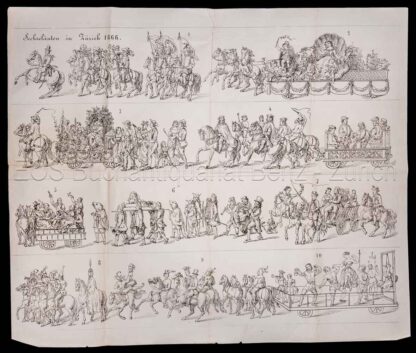 Sechseläuten in Zürich 1866.
1
2
3
4
EOS Buchantiquariat Benz, Zürich
5
6
7
8
9
10